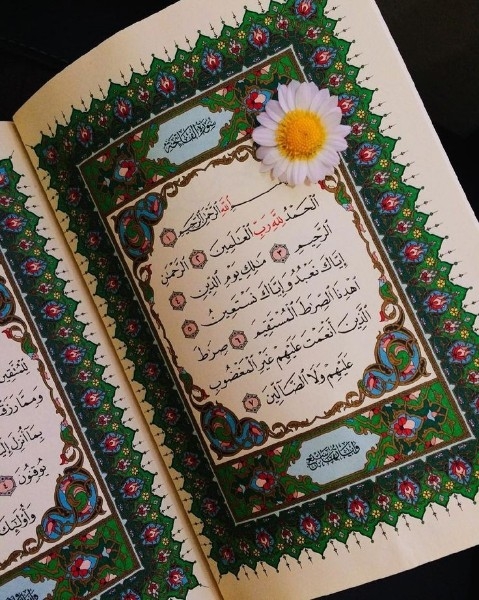 سُورَةُ الفَاتِحَةِ
ٱللَّهِ ٱلرَّحْمَٰنِ ٱلرَّحِيمِ ١
ٱلْحَمْدُ لِلَّهِ رَبِّ ٱلْعَٰلَمِينَ ٢ ٱلرَّحْمَٰنِ
ٱلرَّحِيمِ ٣ مَٰلِكِ يَوْمِ ٱلدِّينِ ٤
إِيَّاكَ نَعْبُدُ وَإِيَّاكَ نَسْتَعِينُ ٥
ٱهْدِنَا ٱلصِّرَٰطَ ٱلْمُسْتَقِيمَ ٦ صِرَٰطَ
ٱلَّذِينَ أَنْعَمْتَ عَلَيْهِمْ غَيْرِ ٱلْمَغْضُوبِ
عَلَيْهِمْ وَلَا ٱلضَّآلِّينَ ٧
لِّلْمُتَّقِينَ
بِمَآ أُنزِلَ
يُوقِنُونَ
وَأُو۟لَٰٓئِكَ